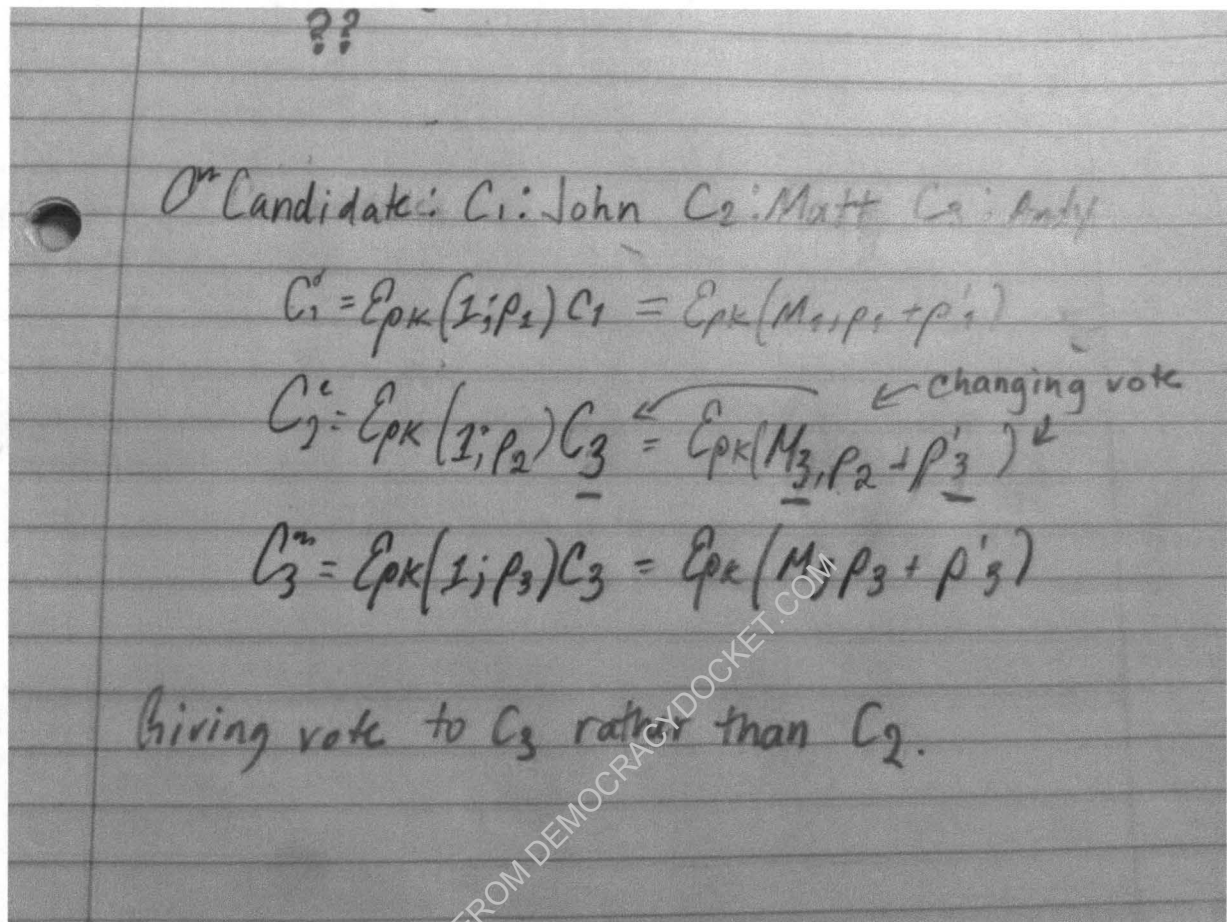 ??
Candidate: C₁: John C₂: Matt C₃: Andy
C₁' = Epk(1; ρ₁) C₁ = Epk(M₁, ρ₁ + ρ'₁)
← Changing vote
C₂' = Epk(1; ρ₂) C₃ = Epk(M₃, ρ₂ + ρ'₃)
C₃ = Epk(1; ρ₃) C₃ = Epk(M; ρ₃ + ρ'₃)
Giving vote to C₃ rather than C₂.
FROM DEMOCRACYDOCKET.COM